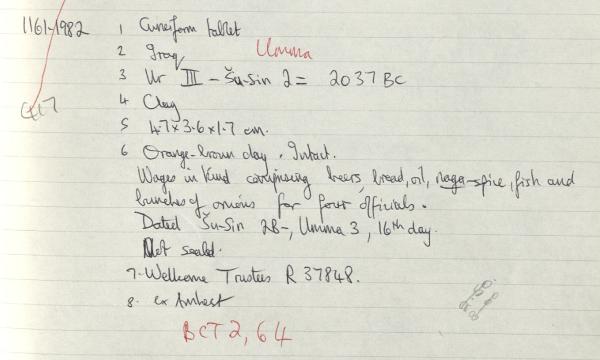 1161-1982 1 Cuneiform tablet
2 Iraq Umma
3 Ur III - Šu-Sin 2 = 2037 BC
4 Clay
5 4.7 x 3.6 x 1.7 cm.
6 Orange-brown clay. Intact.
Wages in kind comprising beers, bread, oil, naga-spice, fish and
bunches of onions for four officials.
Dated Šu-Sin 2B-, Umma 3, 16th day.
Not sealed.
7. Wellcome Trustees R 37848.
8. ex Amhest
BCT 2, 64